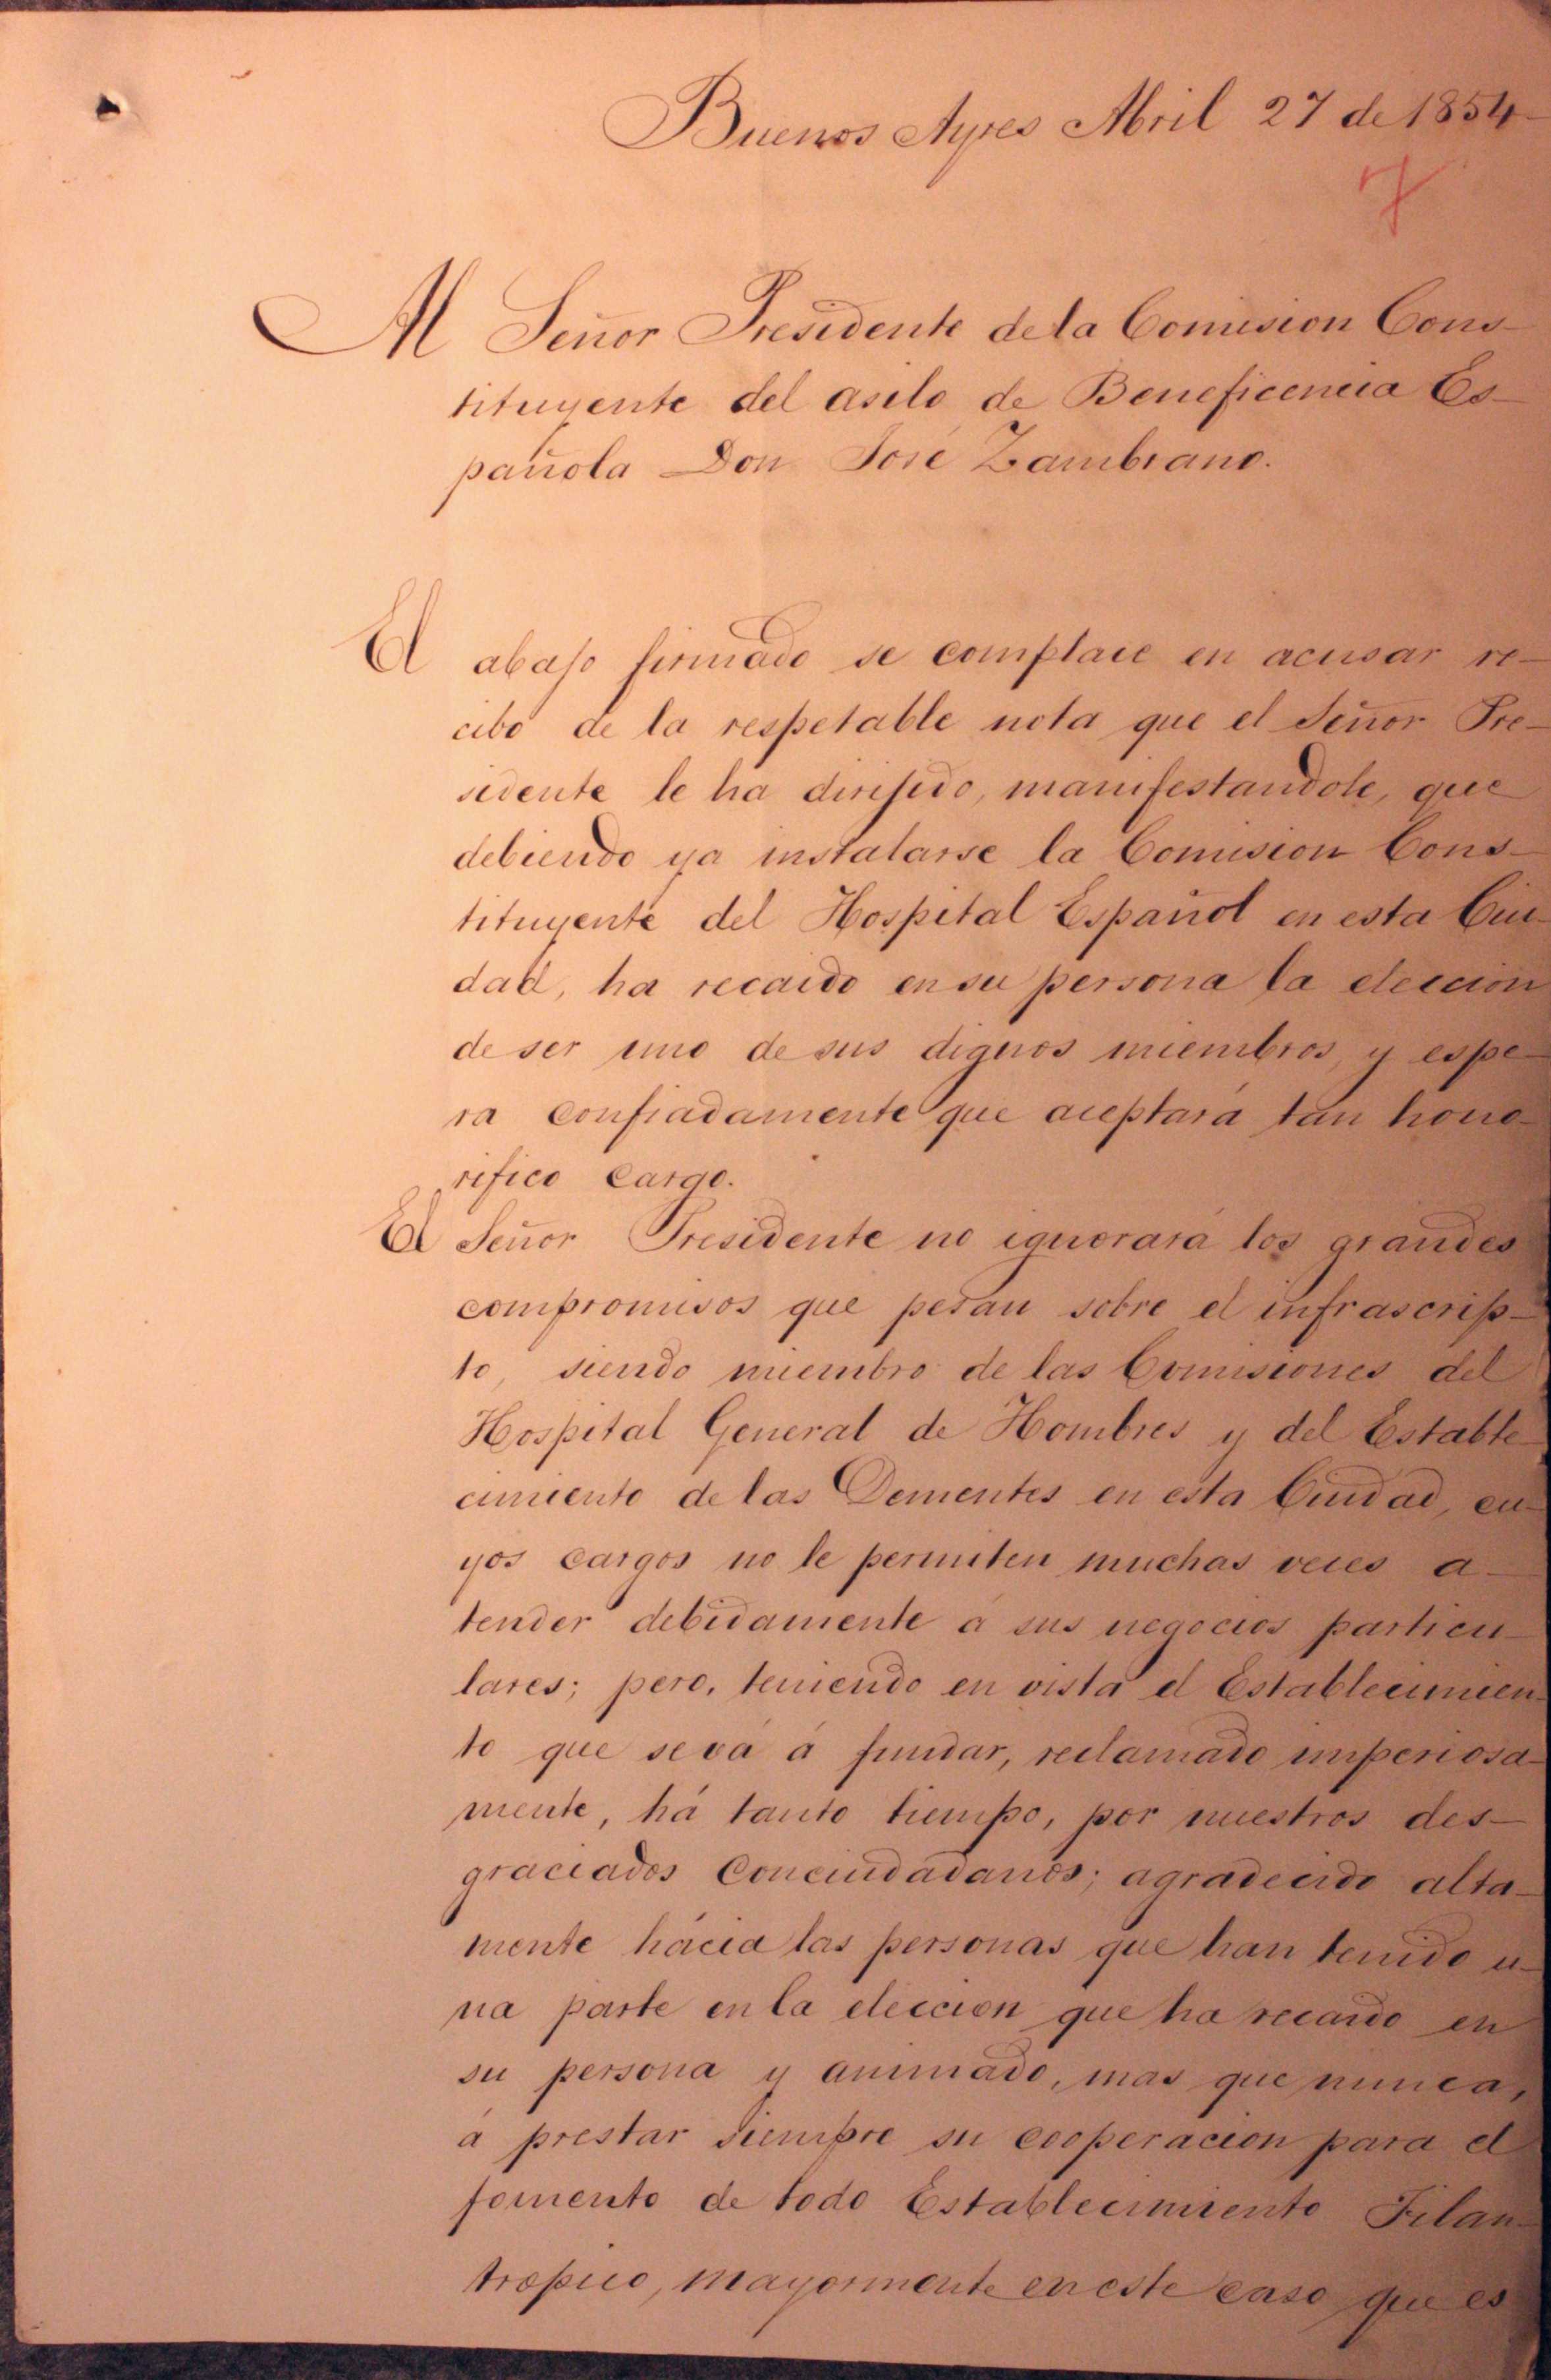 Buenos Ayres Abril 27 de 1854
7
Al Señor Presidente de la Comision Cons-
tituyente del asilo de Beneficencia Es-
pañola Don José Zambrano.
El abajo firmado se complace en acusar re-
cibo de la respetable nota que el Señor Pre-
sidente le ha dirijido, manifestandole, que
debiendo ya instalarse la Comision Cons-
tituyente del Hospital Español en esta Ciu-
dad, ha recaido en su persona la eleccion
de ser uno de sus dignos miembros, y espe-
ra confiadamente que aceptará tan hono-
rifico cargo.
El Señor Presidente no ignorará los grandes
compromisos que pesan sobre el infrascrip-
to, siendo miembro de las Comisiones del
Hospital General de Hombres y del Estable-
cimiento de las Dementes en esta Ciudad, cu-
yos cargos no le permiten muchas veces a-
tender debidamente á sus negocios particu-
lares; pero, teniendo en vista el Establecimien-
to que se vá á fundar, reclamado imperiosa-
mente, há tanto tiempo, por nuestros des-
graciados Conciudadanos; agradecido alta-
mente hácia las personas que han tenido u-
na parte en la eleccion que ha recaido en
su persona y animado, mas que nunca,
á prestar siempre su cooperacion para el
fomento de todo Establecimiento Filan-
tropico, mayormente en este caso que es